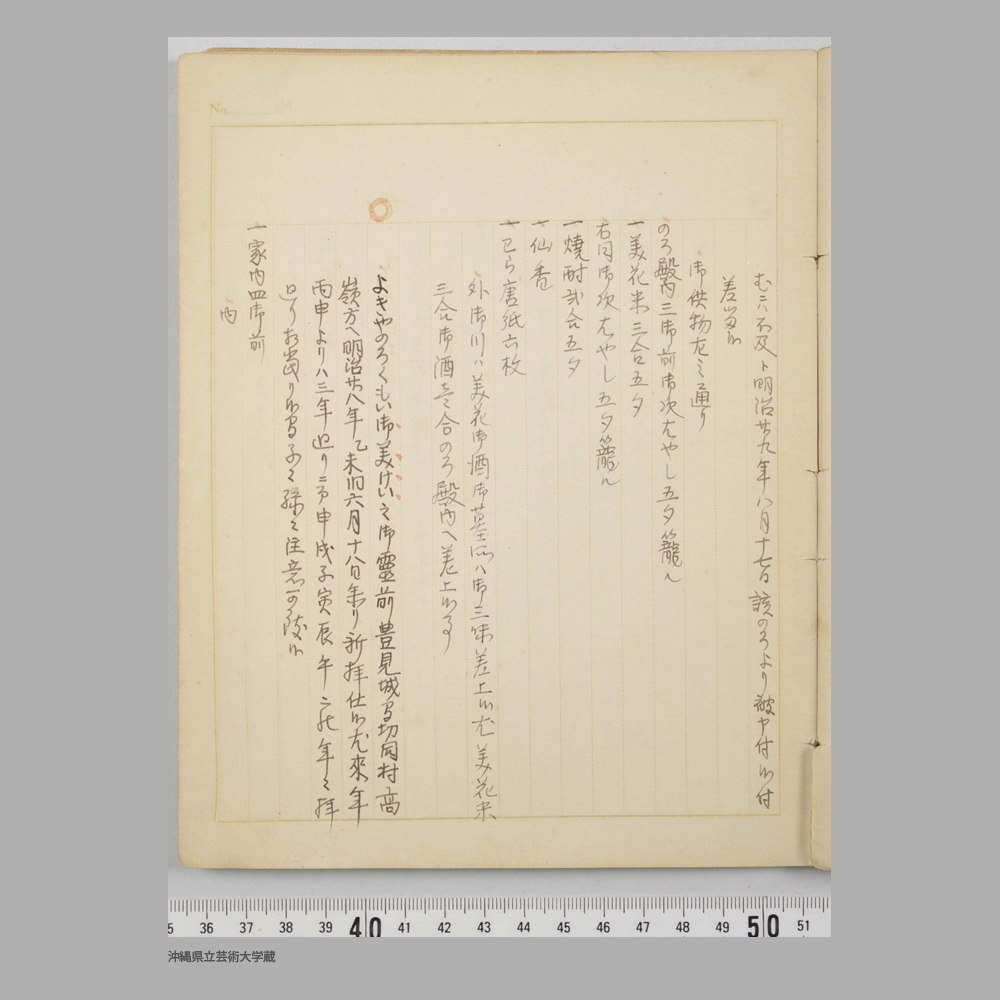 むニ不及ト明治廿九年八月十七日該のろより被申付候付
差出候
御供物左之通り
のろ殿内三御前御次はやし五夕籠ル
一美花米三合五夕
右同御次はやし五夕籠ル
一焼酎弐合五夕
一仙香
一已ら唐紙六枚
外御川ハ美花御酒御墓所ハ御三味差上候尤美花米
三合御酒壱合のろ殿内へ差上候事
よきやのろくもい御美けい之御靈前豊見城間切同村高
嶺方へ明治廿八年乙未旧六月十八日参り祈拝仕候尤來年
丙申よりハ三年廻りニ而申戌子寅辰午之年々拝
廻りお当り候間子々孫々注意可致候
一家内四御前
内
No.
36 37 38 39 40 41 42 43 44 45 46 47 48 49 50 51
沖縄県立芸術大学蔵